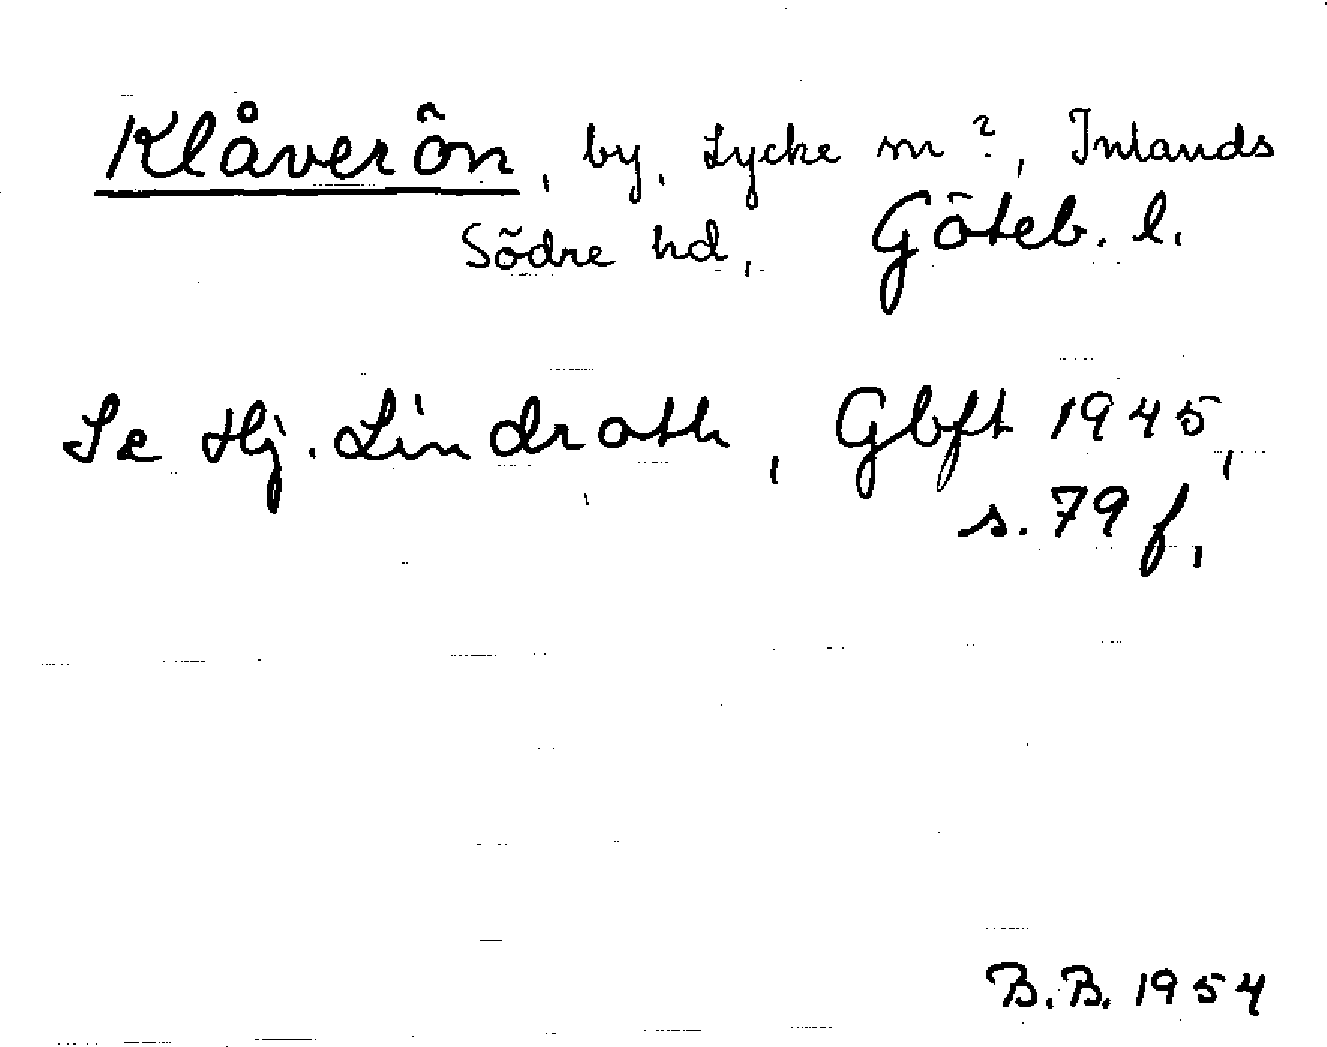 Klåverön, by, Lycke sn?, Inlands
Södre hd, Göteb. l.
Se Hj. Lindroth, Gbft 1945,
s. 79 f.
B.B. 1954